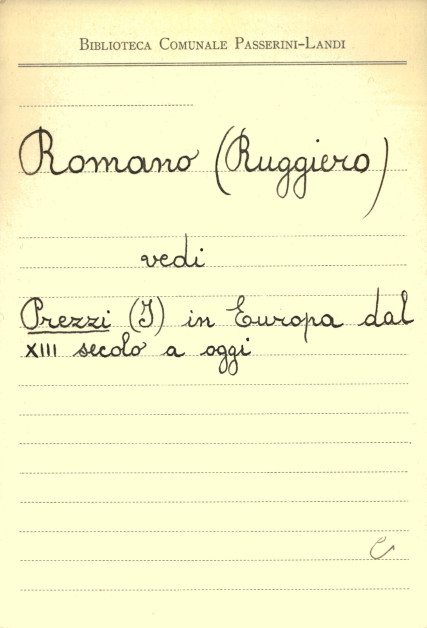 Biblioteca Comunale Passerini-Landi
Romano (Ruggiero)
vedi
Prezzi (I) in Europa dal
XIII secolo a oggi